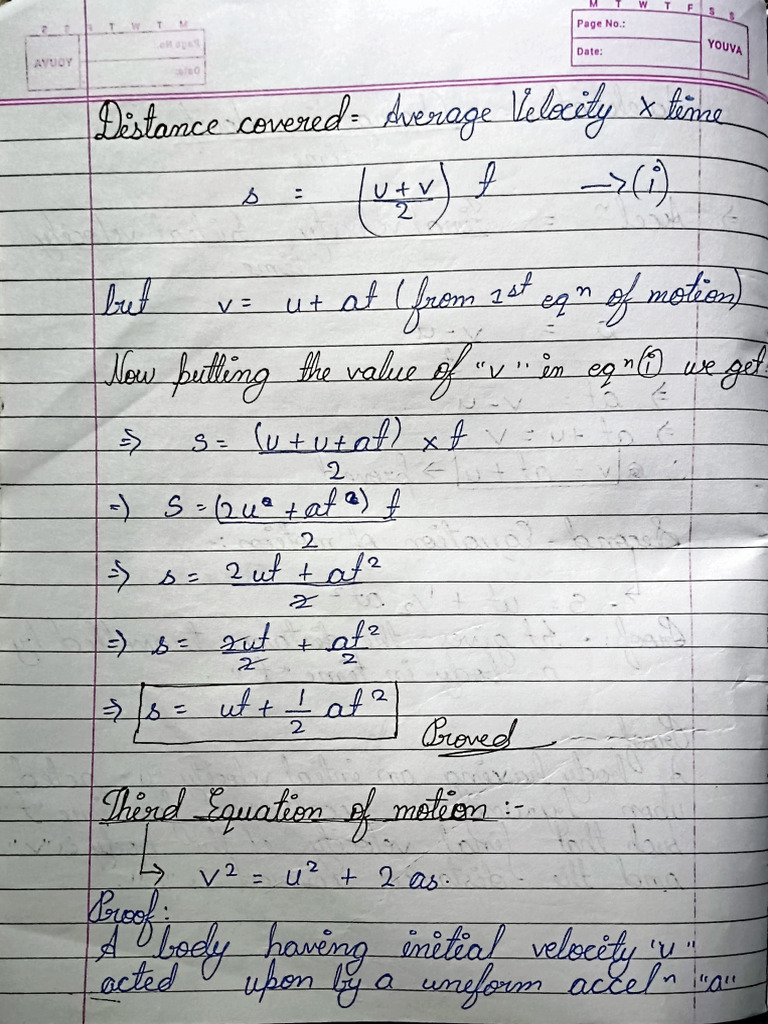 M T W T F S S
Page No.:
Date:
YOUVA
Distance covered = Average Velocity × time
s = (u + v / 2) t → (i)
but v = u + at (from 1st eqⁿ of motion)
Now putting the value of "v" in eqⁿ (i) we get
⇒ s = (u + u + at) / 2 × t
⇒ S = (2u + at) t / 2
⇒ s = 2ut + at² / 2
⇒ s = 2ut / 2 + at² / 2
⇒ s = ut + 1/2 at²
Proved
Third Equation of motion :-
↳ v² = u² + 2 as.
Proof:
A body having initial velocity "u"
acted upon by a uneform accelⁿ "a"